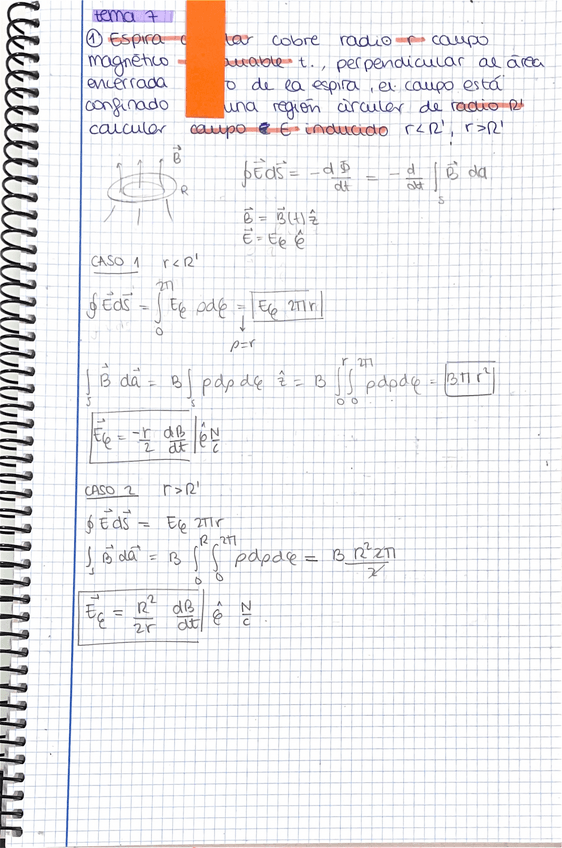 tema 7
① Espira c lar cobre radio r campo
magnético riable t., perpendicular al área
encerrada o de la espira, el campo está
confinado una región circular de radio R'
calcular campo e E inducido r<R', r>R'
B⃗
R
∮E⃗ds⃗ = -dΦ/dt = -d/dt ∫s B⃗ da
B⃗ = B⃗(t) ẑ
E⃗ = Eφ φ̂
CASO 1 r<R'
∮E⃗ds⃗ = ∫₀^2π Eφ ρdφ = Eφ 2πr
ρ=r
∫s B⃗ da⃗ = B ∫s ρdρdφ ẑ = B ∫₀^r ∫₀^2π ρdρdφ = Bπr²
E⃗φ = -r/2 dB/dt φ̂ N/C
CASO 2 r>R'
∮E⃗ds⃗ = Eφ 2πr
∫s B⃗da⃗ = B ∫₀^R ∫₀^2π ρdρdφ = B R²2π/2
E⃗φ = R²/2r dB/dt φ̂ N/C